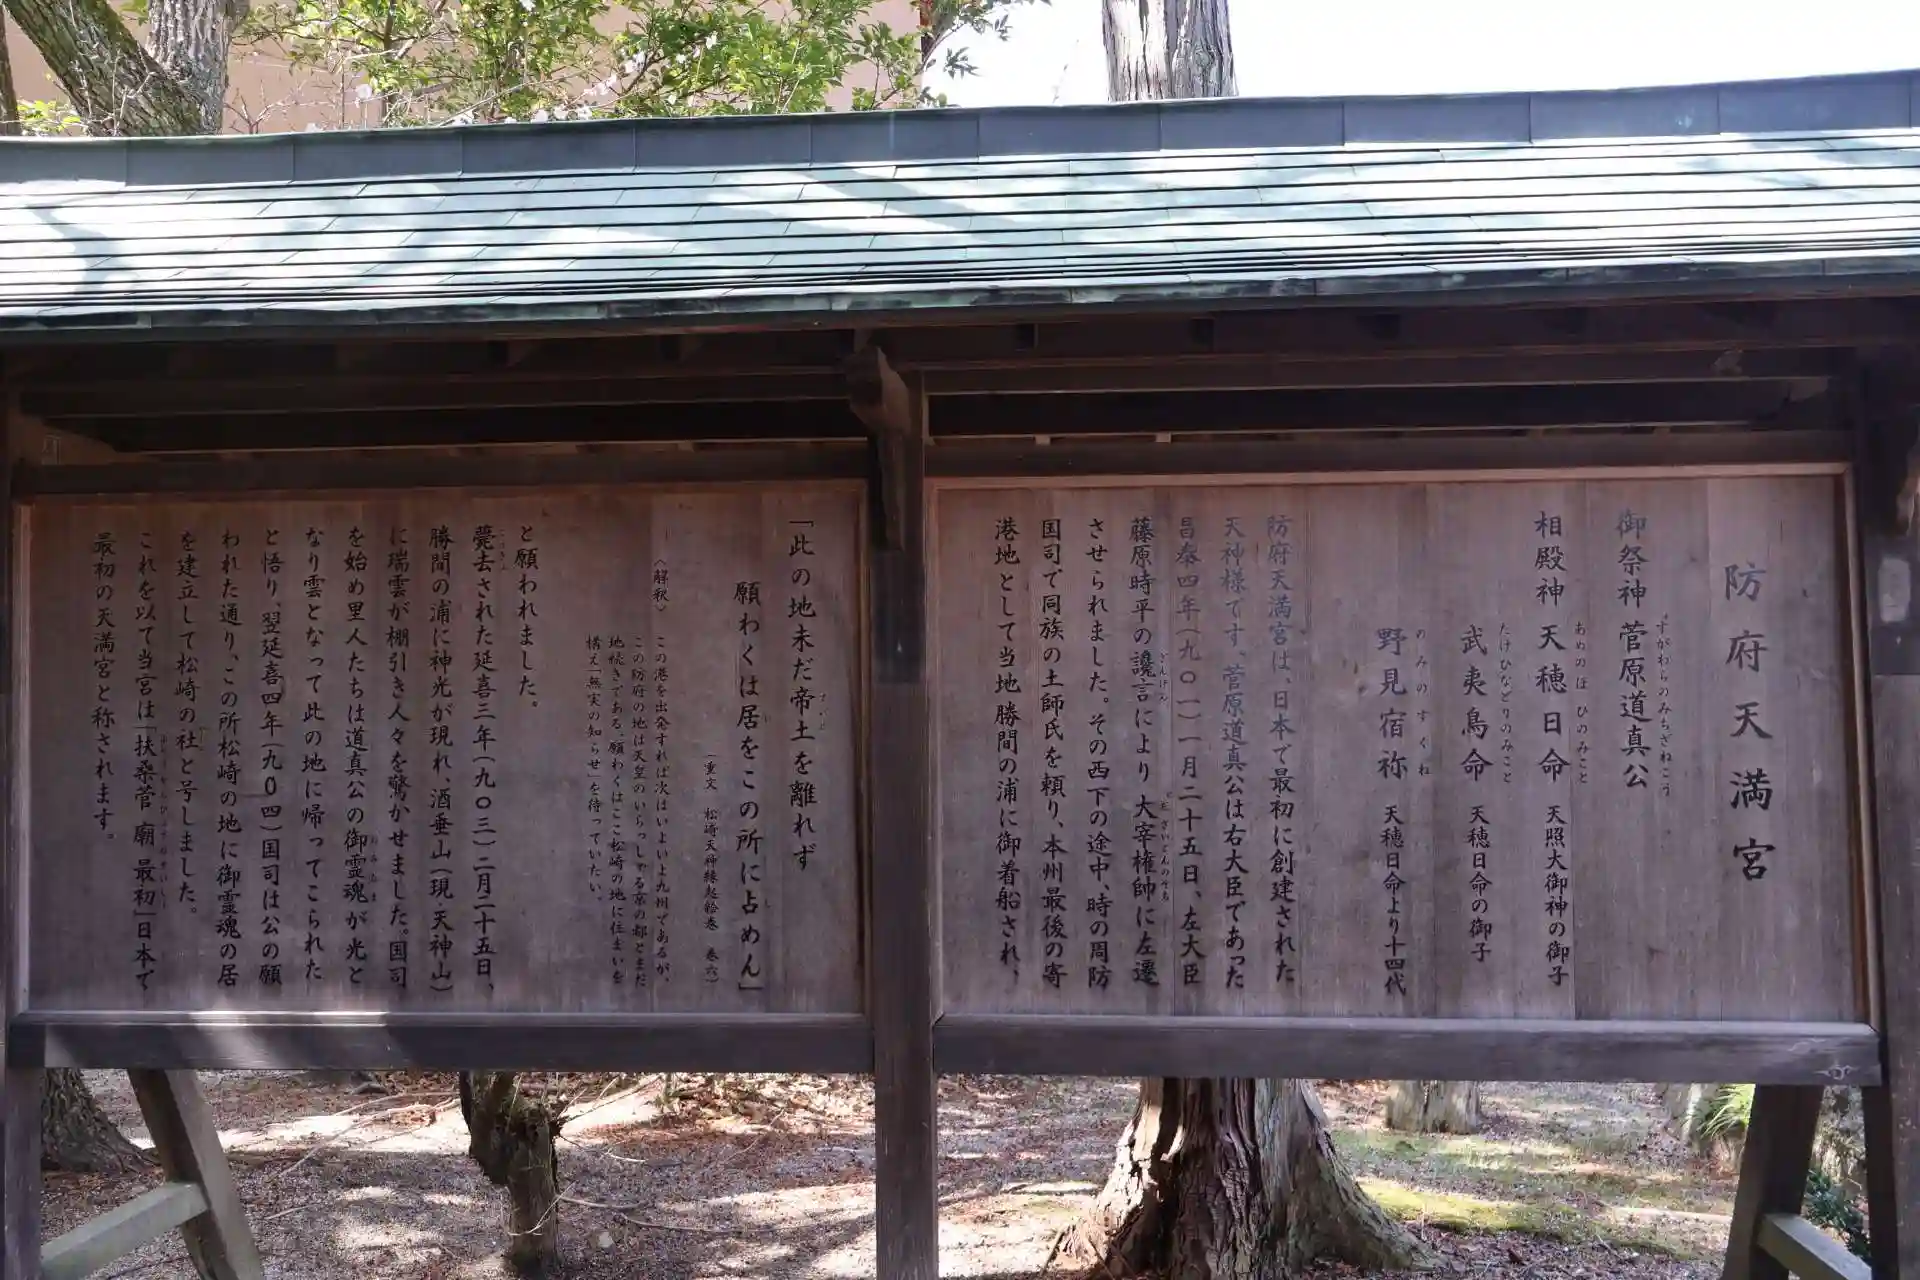 防府天満宮
御祭神 菅原道真公
すがわらのみちざねこう
相殿神 天穂日命 天照大御神の御子
あめのほひのみこと
武夷鳥命 天穂日命の御子
たけひなどりのみこと
野見宿祢 天穂日命より十四代
のみのすくね
防府天満宮は、日本で最初に創建された
天神様です。菅原道真公は右大臣であった
昌泰四年(九〇一)一月二十五日、左大臣
藤原時平の讒言により大宰権帥に左遷
ざんげん
だざいごんのそち
させられました。その西下の途中、時の周防
国司で同族の土師氏を頼り、本州最後の寄
港地として当地勝間の浦に御着船され、
「此の地未だ帝土を離れず
願わくは居をこの所に占めん」
(重文 松崎天神縁起絵巻 巻六)
〈解釈〉
この港を出発すれば次はいよいよ九州であるが、
この防府の地は天皇のいらっしゃる京の都とまだ
地続きである。願わくはここ松崎の地に住まいを
構え「無実の知らせ」を待っていたい。
と願われました。
薨去された延喜三年(九〇三)二月二十五日、
勝間の浦に神光が現れ、酒垂山(現・天神山)
に瑞雲が棚引き人々を驚かせました。国司
を始め里人たちは道真公の御霊魂が光と
なり雲となって此の地に帰ってこられた
と悟り、翌延喜四年(九〇四)国司は公の願
われた通り、この所松崎の地に御霊魂の居
を建立して松崎の社と号しました。
これを以て当宮は「扶桑菅廟最初」日本で
最初の天満宮と称されます。